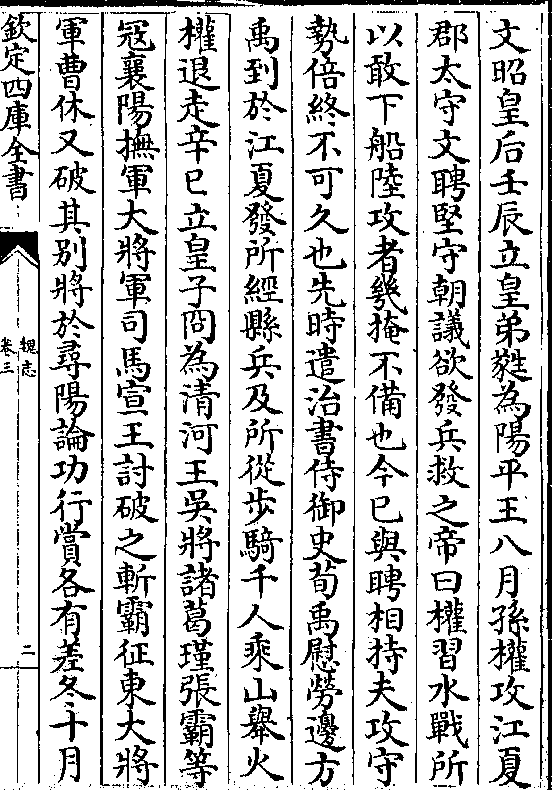 文昭皇后壬辰立皇弟蕤為陽平王八月孫權攻江夏
郡太守文聘堅守朝議欲發兵救之帝曰權習水戰所
以敢下船陸攻者幾掩不備也今已與聘相持夫攻守
勢倍終不可久也先時遣治書侍御史荀禹慰勞邊方
禹到於江夏發所經縣兵及所從步騎千人乘山舉火
權退走辛巳立皇子冏為清河王吳將諸葛瑾張霸等
寇襄陽撫軍大將軍司馬宣王討破之斬霸征東大將
軍曹休又破其別將於尋陽論功行賞各有差冬十月
欽定四庫全書
魏志
卷三
二